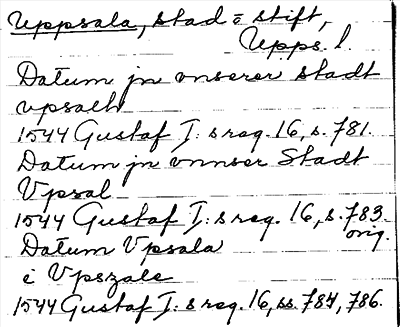 Uppsala, stad o stift,
Upps. l.
Datum jn vnserer stadt
vpsalh
1544 Gustaf I: s reg. 16, s. 781.
Datum jn vnnser Stadt
Vpsal
1544 Gustaf I: s reg. 16, s. 783.
orig.
Datum Vpsala
i Vpszale
1544 Gustaf I: s reg. 16, ss. 784, 786.